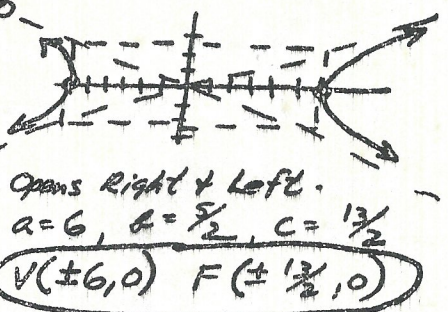 Opens Right & Left.
a=6, b=5/2, c=13/2
V(±6,0) F(±13/2,0)